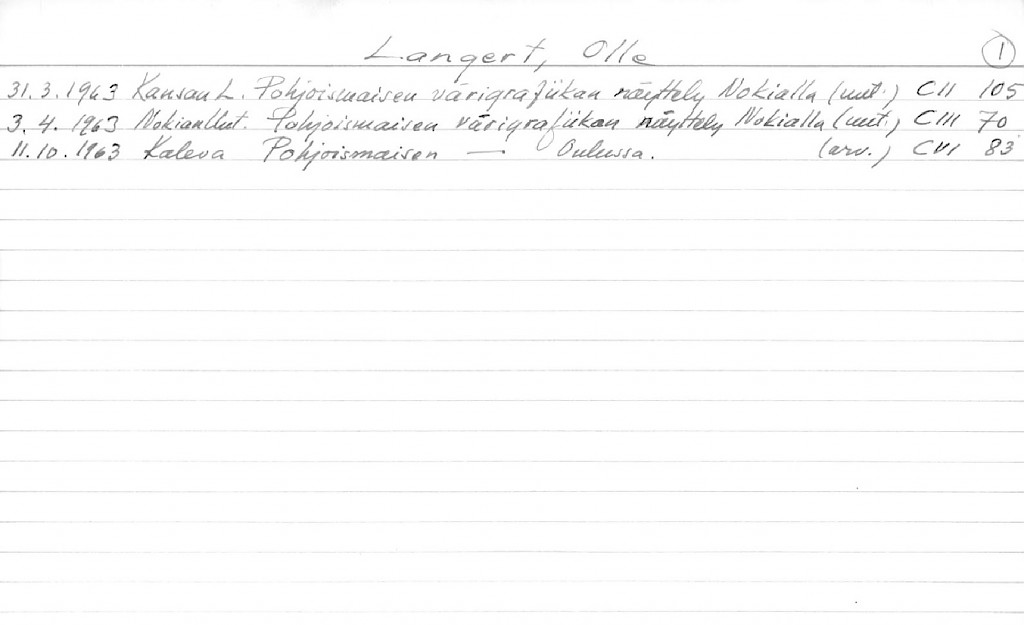 Langert, Olle 1
31.3.1963 Kansan L. Pohjoismaisen värigrafiikan näyttely Nokialla (uut.) CII 105
3.4.1963 Nokian Uut. Pohjoismaisen värigrafiikan näyttely Nokialla (uut.) CIII 70
11.10.1963 Kaleva Pohjoismaisen — Oulussa. (arv.) CVI 83